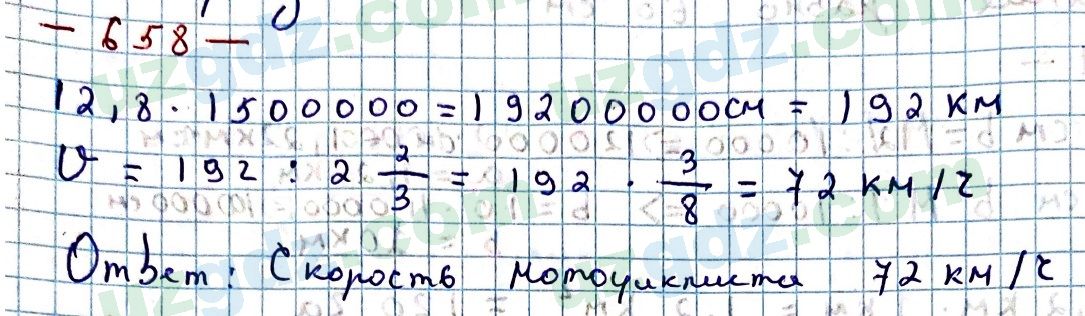 - 658 -
12,8 · 1500000 = 19200000см = 192 км
V = 192 : 2 2/3 = 192 · 3/8 = 72 км/ч
Ответ: Скорость мотоциклиста 72 км/ч
uzgdz.com